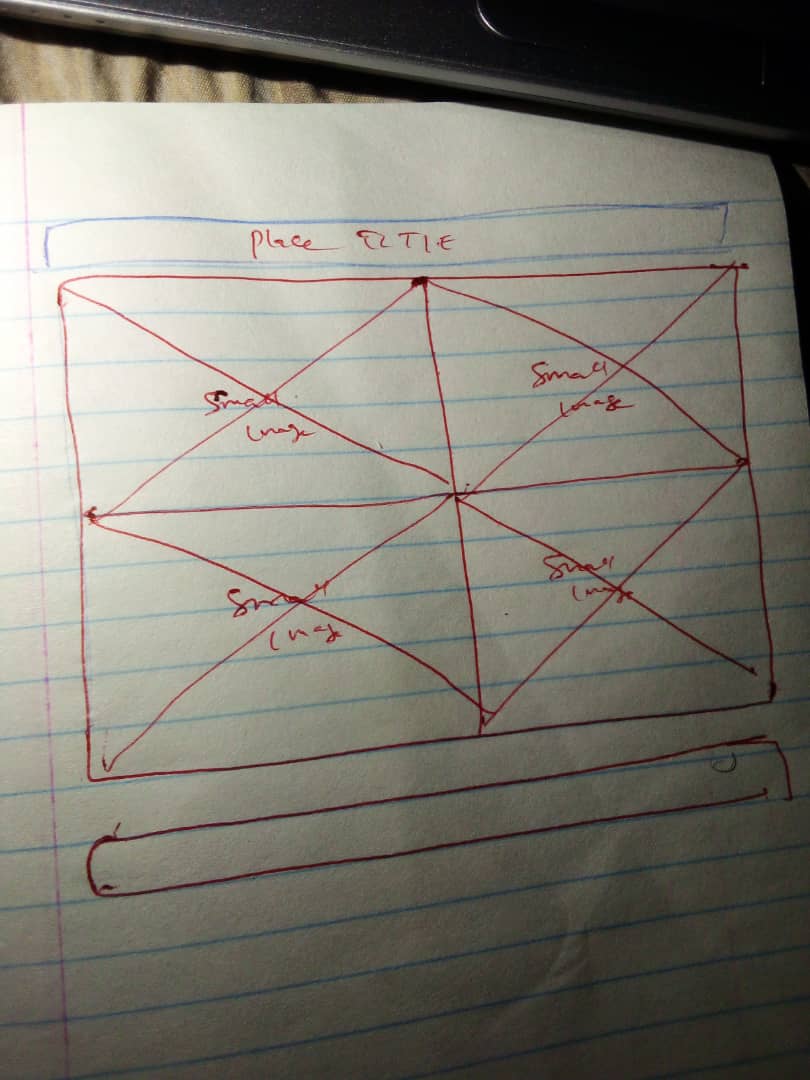 Place TITLE
Small
Image
Small
Image
Small
Image
Small
Image